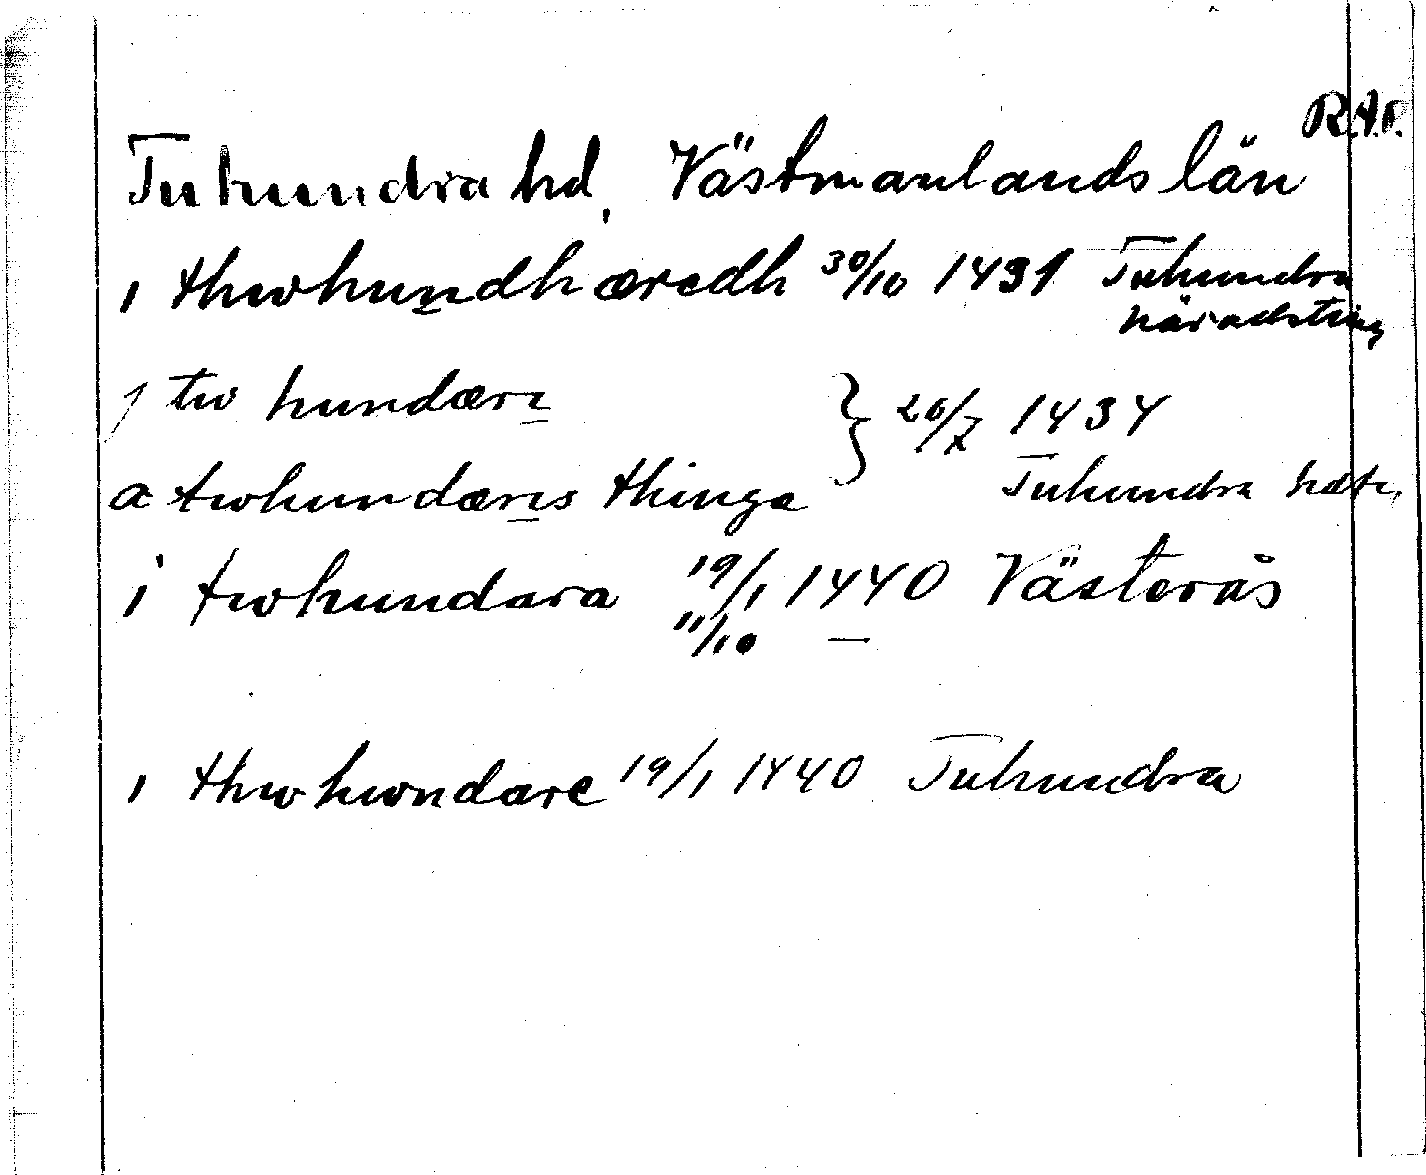 R.A.P.
Tuhundra hd, Västmanlands län
i thwhundhæredh 30/10 1431 Tuhundra
häradsting
j tw hundære } 26/7 1434
a twhundæres thinge Tuhundra hdt.
i twhundara 19/1 1440 Västerås
11/10 —
i thwhwndare 19/1 1440 Tuhundra